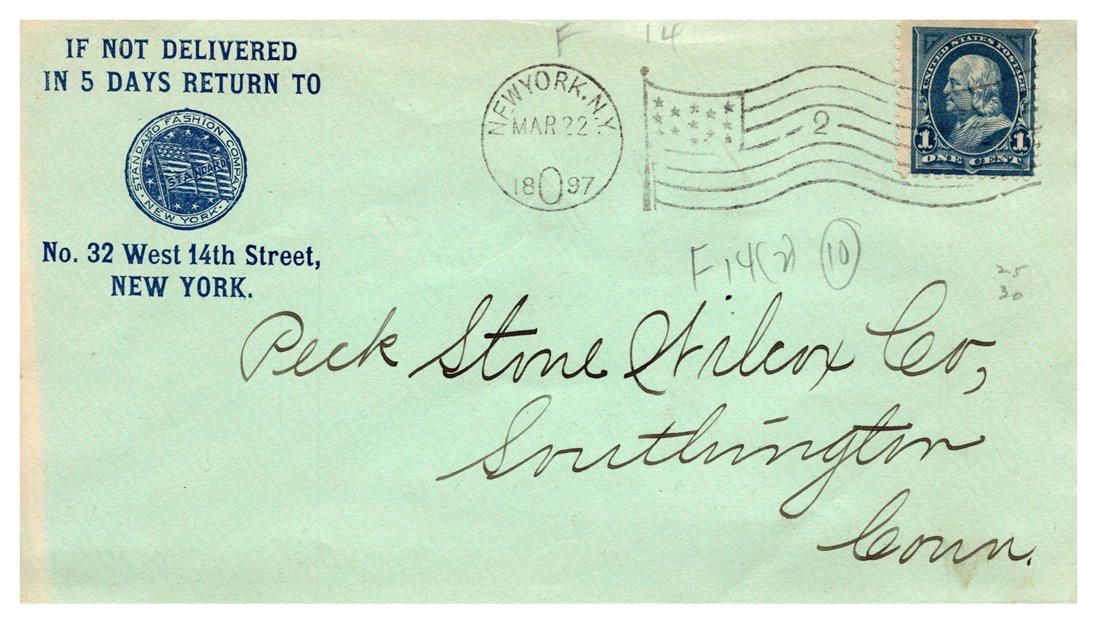 F 14
IF NOT DELIVERED
IN 5 DAYS RETURN TO
STANDARD FASHION COMPANY
STANDARD
NEW YORK.
No. 32 West 14th Street,
NEW YORK.
NEW YORK, N.Y.
MAR 22
1897
2
UNITED STATES POSTAGE
1 1
ONE CENT
F14(2) 10
25
30
Peck Stone Wilcox Co,
Southington
Conn.